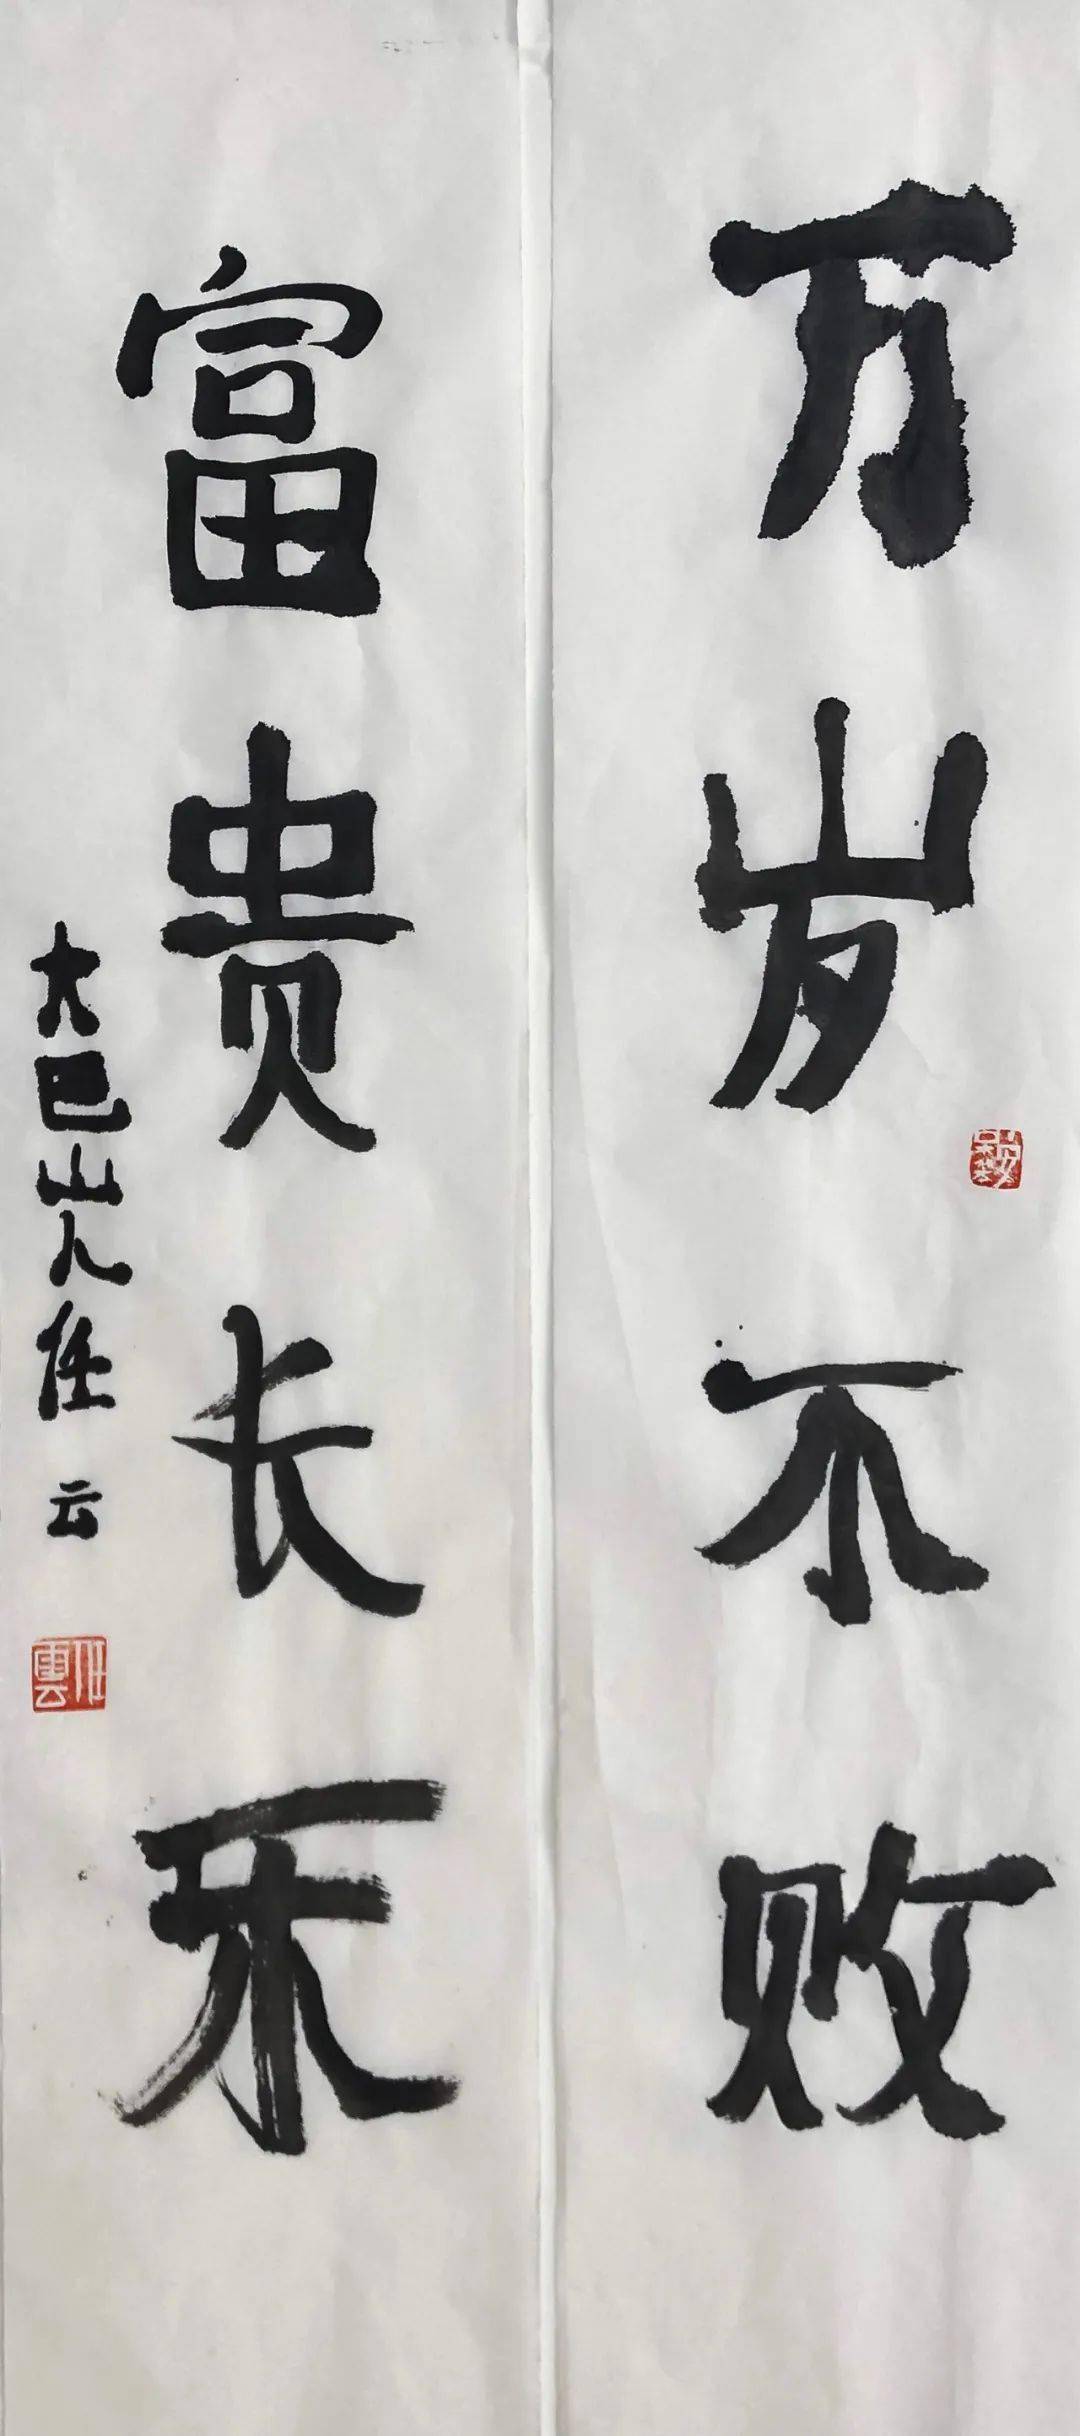 万岁不败
富贵长乐
大巴山人任云
任雲